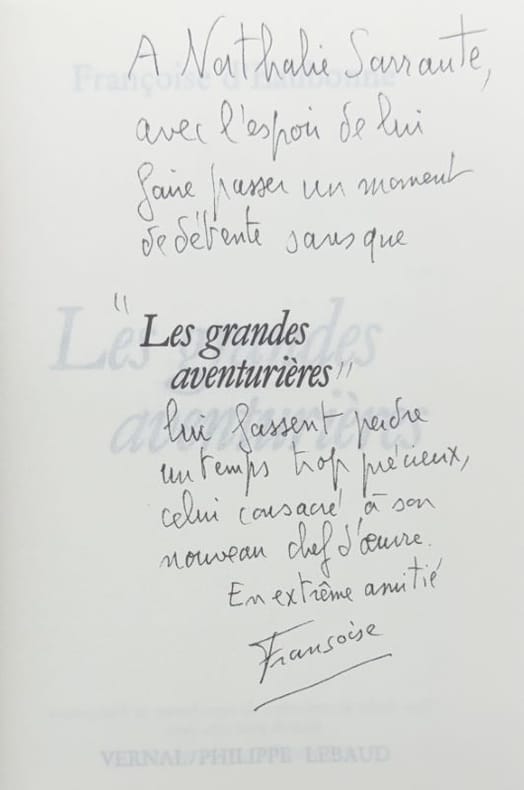 A Nathalie Sarraute,
avec l'espoir de lui
faire passer un moment
de détente sans que
"Les grandes
aventurières"
lui fassent perdre
un temps trop précieux,
celui consacré à son
nouveau chef d'œuvre.
En extrême amitié
Françoise
Françoise d'Eaubonne
Les grandes
aventurières
VERNAL/PHILIPPE LEBAUD